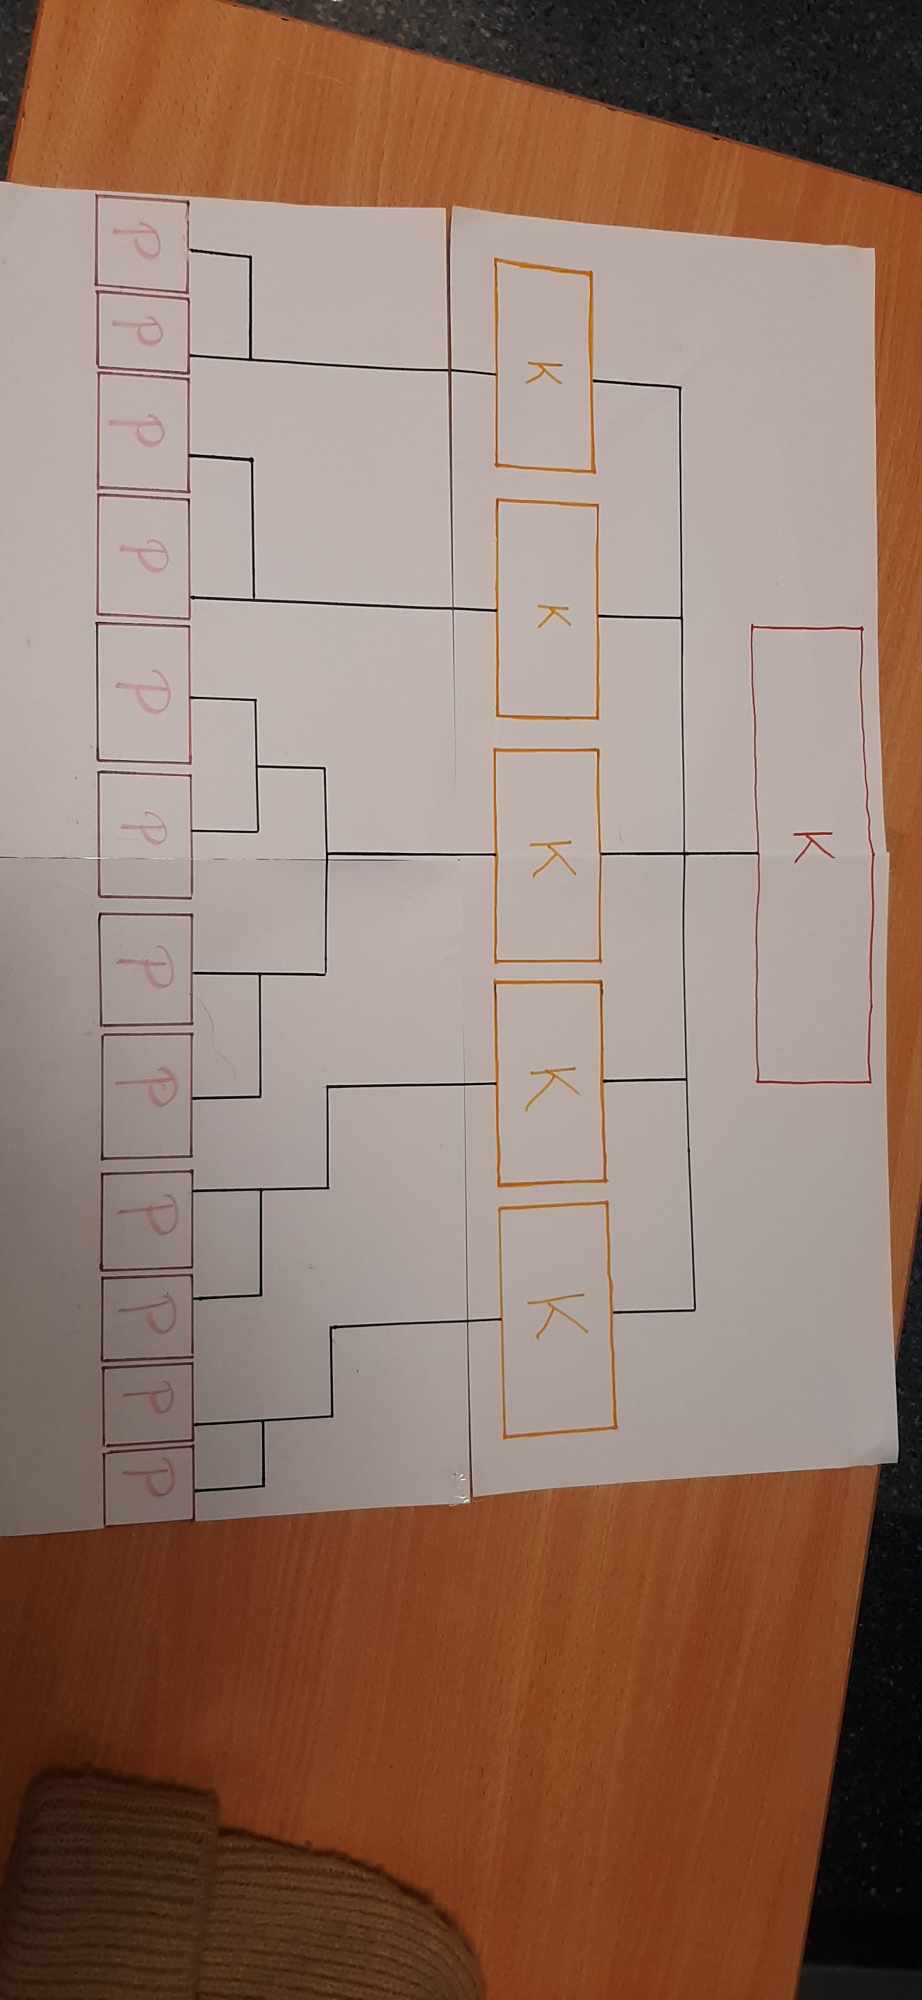 K
K K K K K
P P P P P P P P P P P P